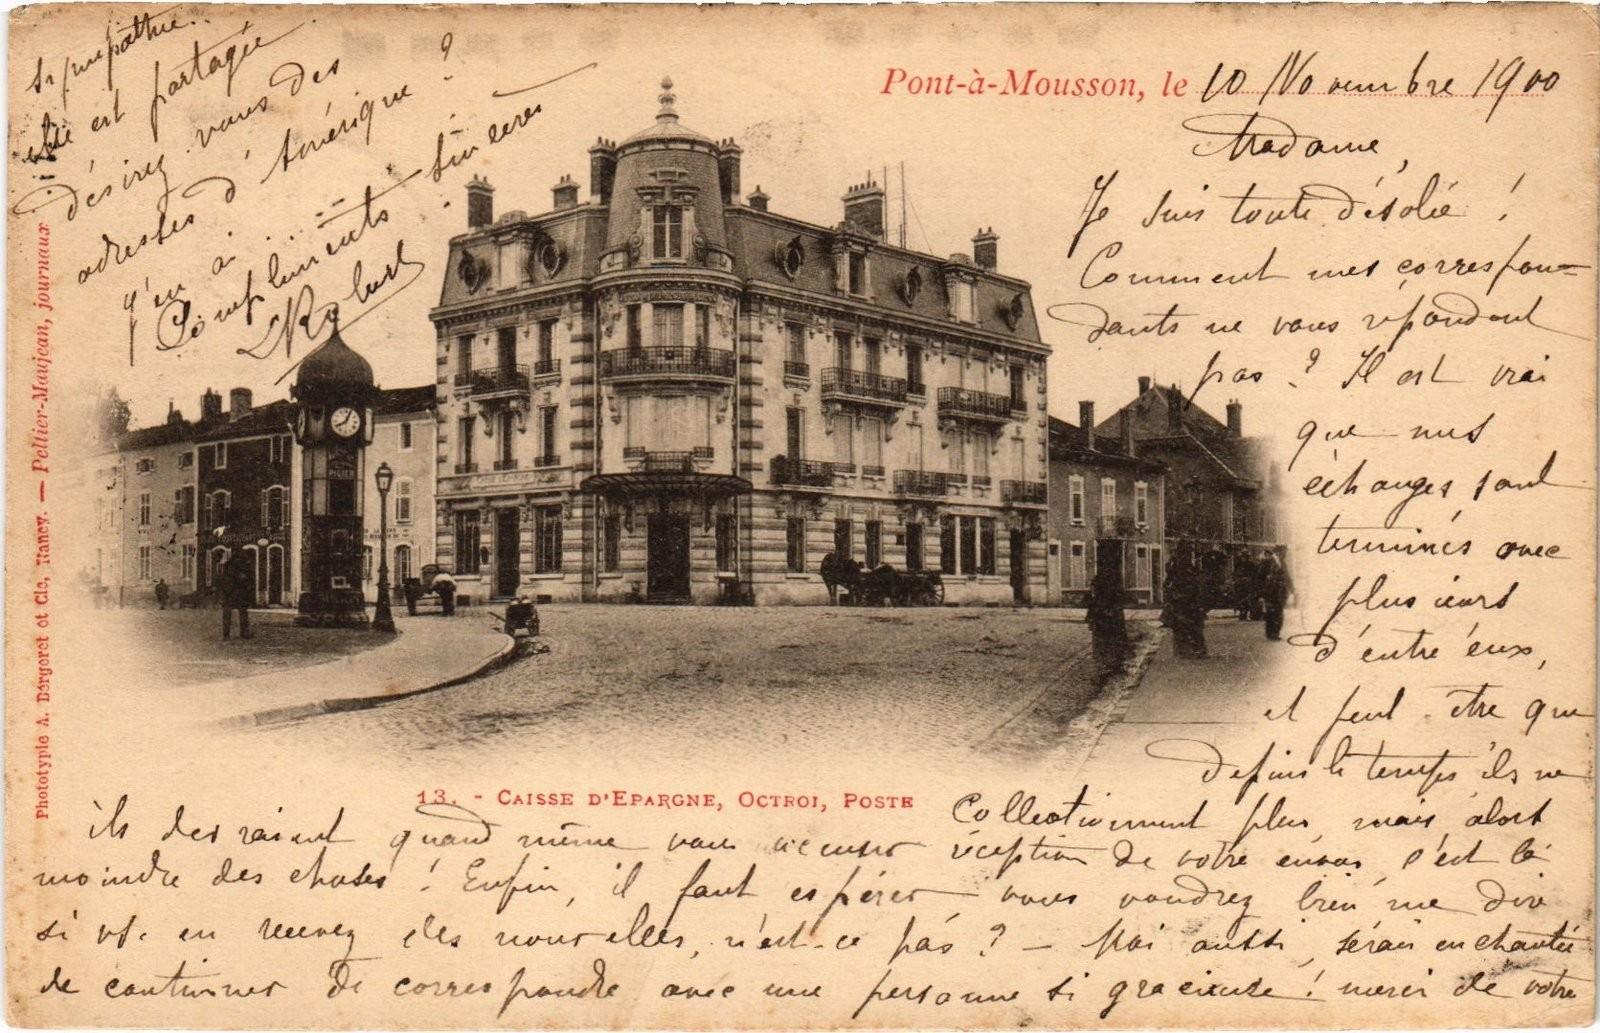 Pont-à-Mousson, le 10 Novembre 1900
Madame,
Je suis toute désolée !
Comment mes correspon=
dants ne vous répondent
pas ? Il est vrai
que mes
échanges sont
terminés avec
plusieurs
d'entre eux,
et peut être que
depuis le temps ils ne
Collectionnent plus, mais, alors
ils devraient quand même vous accuser réception de votre envoi, c'est la
moindre des choses ! Enfin, il faut espérer vous voudrez bien me dire
si vs. en recevez des nouvelles, n'est-ce pas ? — Moi aussi, serais enchantée
de continuer de correspondre avec une personne si gracieuse ! merci de votre
sympathie..
elle est partagée
désirez vous des
adresses d'Amérique ?
j'en ai....
Compliments sincères
13. - CAISSE D'EPARGNE, OCTROI, POSTE
Phototypie A. Bergeret et Cie, Nancy. — Peltier-Maujean, journaux